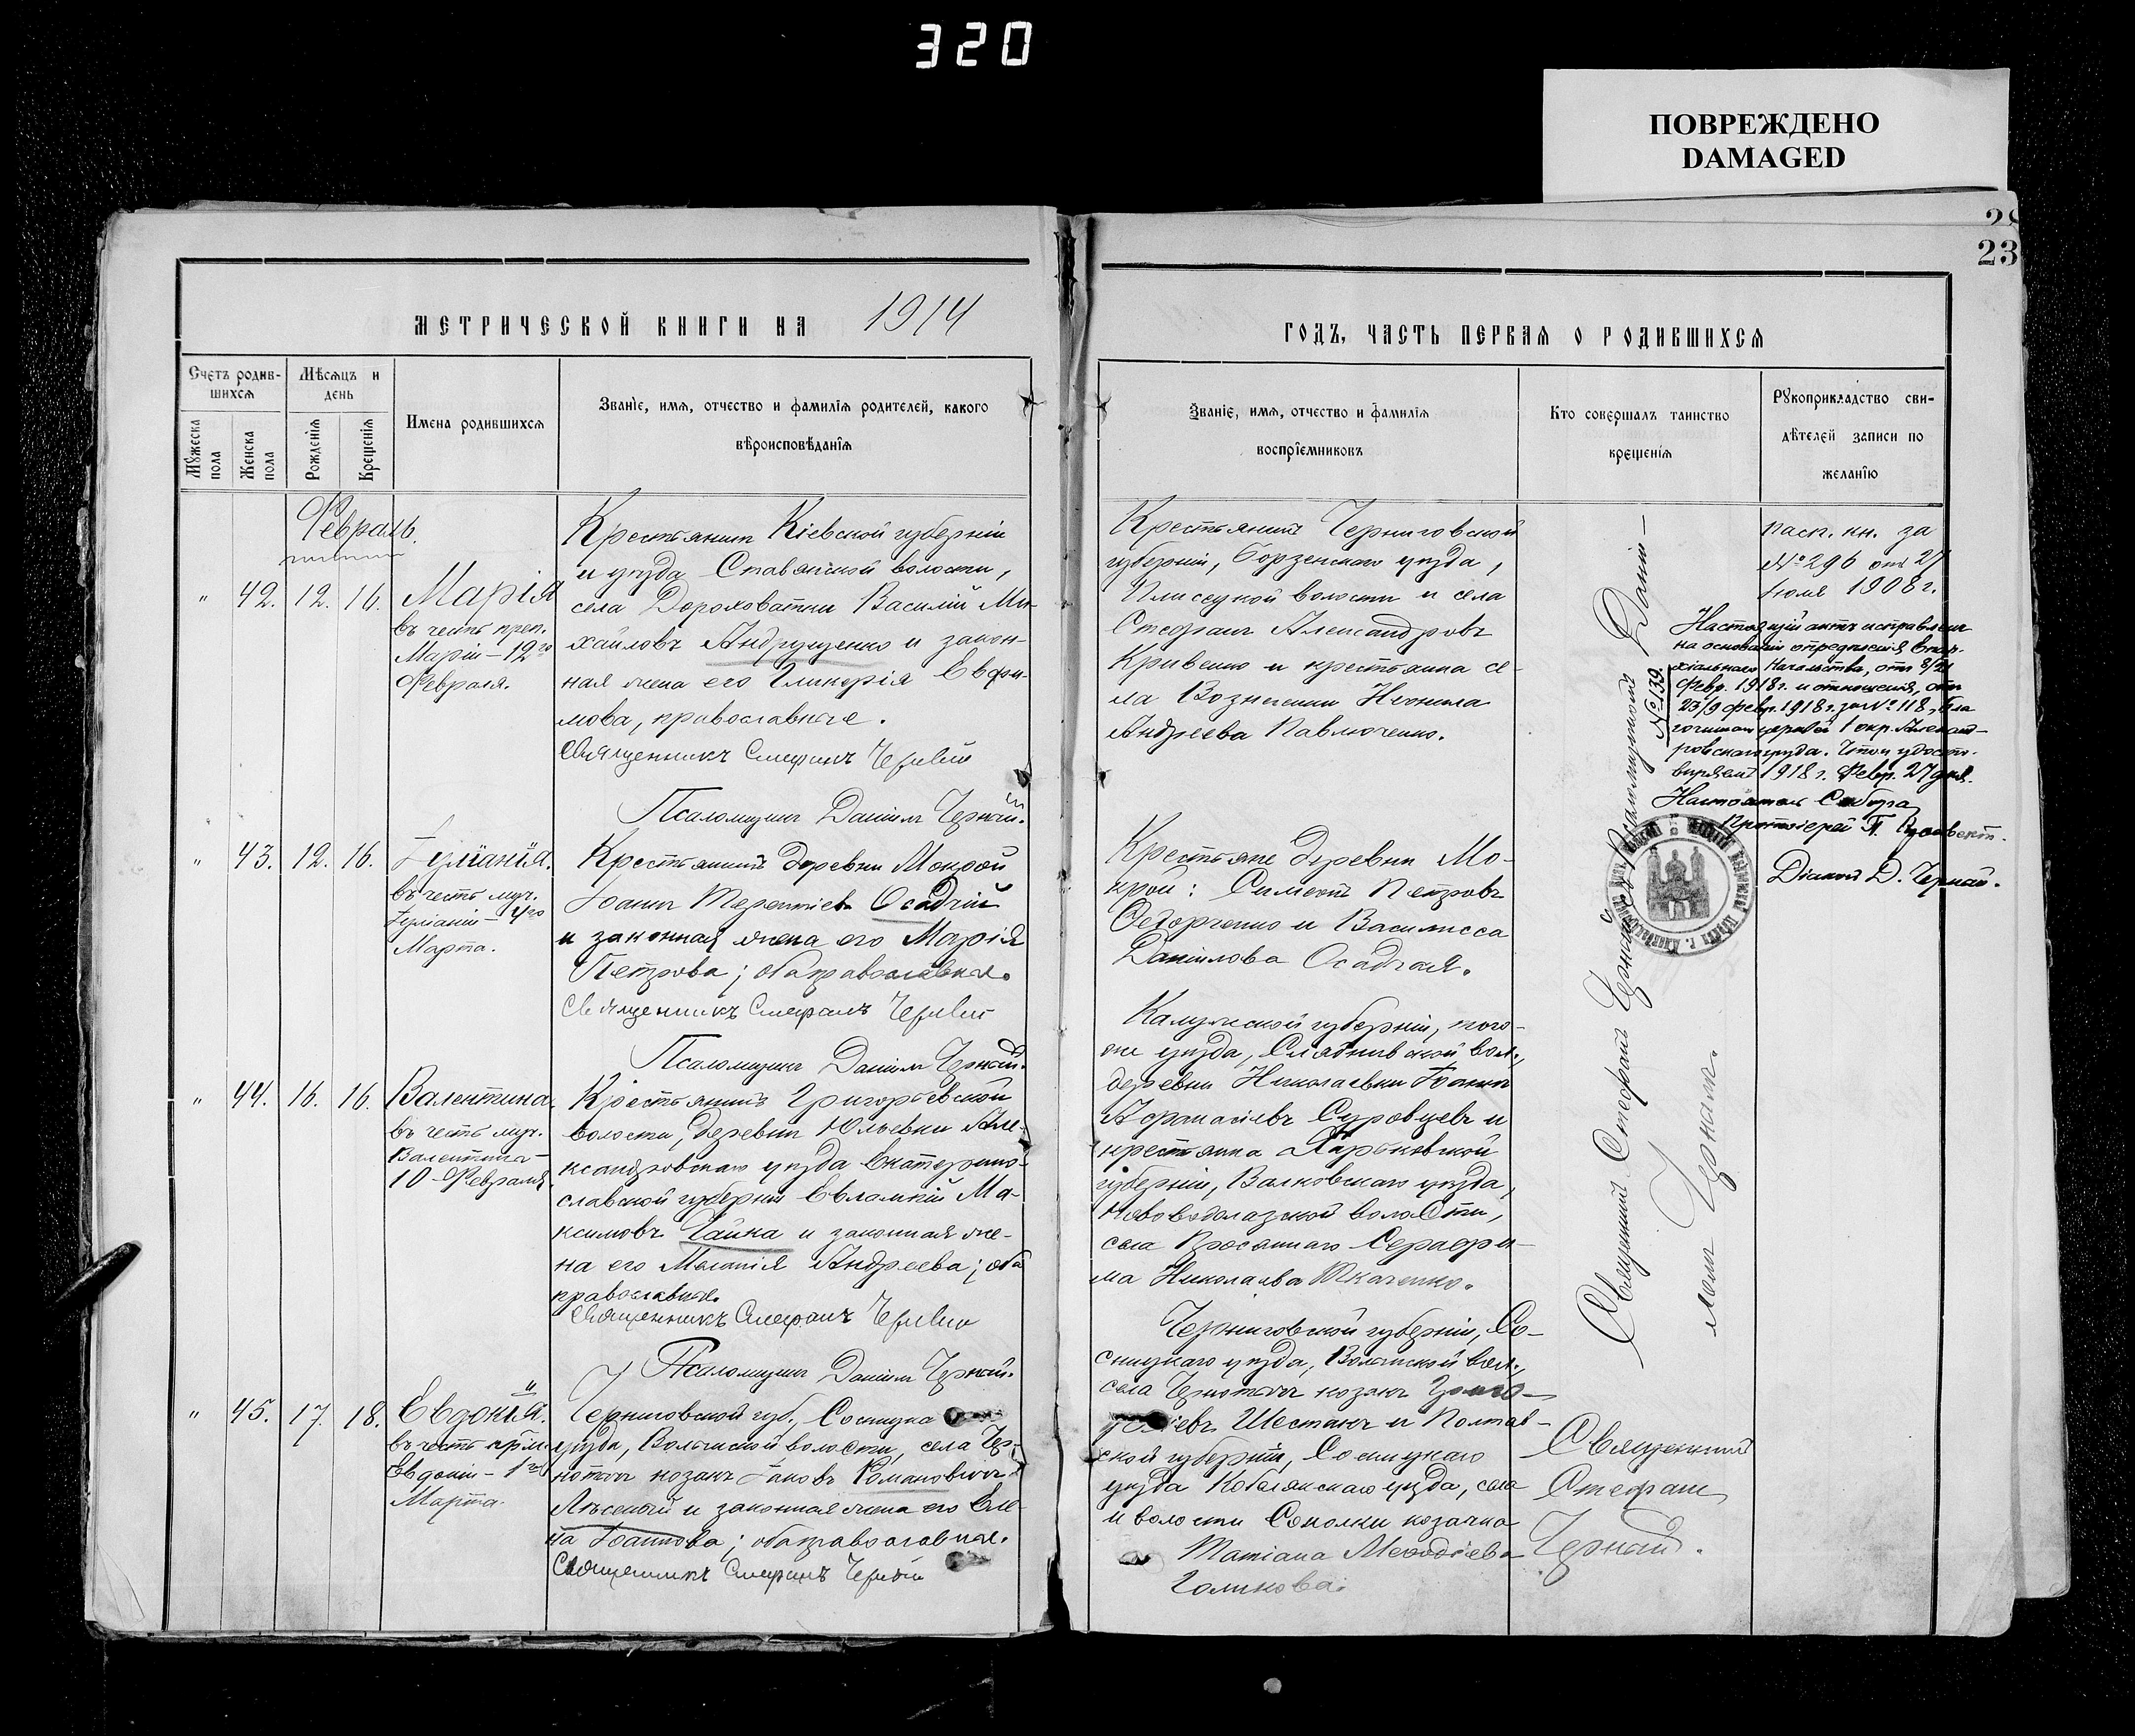 320
ПОВРЕЖДЕНО
DAMAGED
23
МЕТРИЧЕСКОЙ КНИГИ НА 1914
ГОДЪ, ЧАСТЬ ПЕРВАЯ О РОДИВШИХСЯ
Счетъ родив-
шихся
Мужеска пола
Женска пола
Мѣсяцъ и
день
Рожденія
Крещенія
Имена родившихся
Званіе, имя, отчество и фамилія родителей, какого
вѣроисповѣданія
Званіе, имя, отчество и фамилія
воспріемниковъ
Кто совершалъ таинство
крещенія
Рукоприкладство сви-
дѣтелей записи по
желанію
Февраль.
" 42. 12. 16.
Марія
въ честь преп.
Маріи – 12го
Февраля.
Крестьянинъ Кіевской губерніи
и уѣзда Ставянской волости,
села Дороховатки Василій Ми-
хайловъ Андрущенко и закон-
ная жена его Гликерія Евфи-
мова, православные.
Священникъ Стефанъ Черный
Псаломщикъ Даніилъ Черный.
Крестьянинъ Черниговской
губерніи, Борзенскаго уѣзда,
Плисецкой волости и села
Стефанъ Александровъ
Кривенко и крестьянка се-
ла Вознесенки Неонила
Андреева Павлюченко.
пасп. кн. за
№ 296 отъ 27
Іюля 1908 г.
№ 139.
Настоящій актъ исправленъ
на основаніи опредѣленія Епар-
хіальнаго Начальства, отъ 8/21
Февр. 1918 г. и отношенія, отъ
23/9 февр. 1918 г. за № 118, Бла
гочиннаго церквей 1 окр. Александ-
ровскаго уѣзда. Что и удосто-
вѣряемъ 1918 г. Февр. 27 дня.
Настоятель Собора
Протоіерей П.
Діаконъ Д. Черный.
" 43. 12. 16.
Іуліанія.
въ честь муч.
Іуліаніи – 4го
Марта.
Крестьянинъ деревни Мокрой
Іоаннъ Терентіевъ Осадчій
и законная жена его Марія
Петрова; оба православные.
Священникъ Стефанъ Черный
Псаломщикъ Даніилъ Черный.
Крестьяне деревни Мо-
крой: Симеонъ Петровъ
Федорченко и Василисса
Даниилова Осадчая.
" 44. 16. 16.
Валентина
въ честь муч.
Валентины –
10 Февраля
Крестьянинъ Григорьевской
волости, деревни Юльевки Але-
ксандровскаго уѣзда Екатерино-
славской губерніи Евлампій Ма-
ксимовъ Чайка и законная же-
на его Меланія Андреева; оба
православные.
Священникъ Стефанъ Черный
Псаломщикъ Даніилъ Черный.
Калужской губерніи, того-
же уѣзда, вол.,
деревни Николаевки Іоаннъ
Афанасіевъ Суровцевъ и
крестьянка Харьковской
губерніи, Валковскаго уѣзда,
Нововодолазской волости,
села Просяннаго Серафи-
ма Николаева Ткаченко.
Священникъ Стефанъ Черный съ Псаломщикомъ Дани-
ломъ Чернымъ.
" 45. 17. 18.
Евдокія.
въ честь прпм.
Евдокіи – 1го
Марта.
Черниговской губ., Сосницка
уѣзда, Волынской волости, села Чер-
нотичъ козакъ Іаковъ Романовичъ
Лѣсевый и законная жена его Еле-
на Іоаннова; оба православные.
Священникъ Стефанъ Черный
Черниговской губерніи, Со-
сницкаго уѣзда, Волынской вол.,
села Чернотичъ козакъ Григо-
ріевъ Шестакъ и Полтав-
ской губерніи, Сосницкаго
уѣзда Кобелякскаго уѣзда, села
и волости Соколки козачка
Татіана Меѳодіева
Голикова.
Священникъ
Стефанъ
Черный.